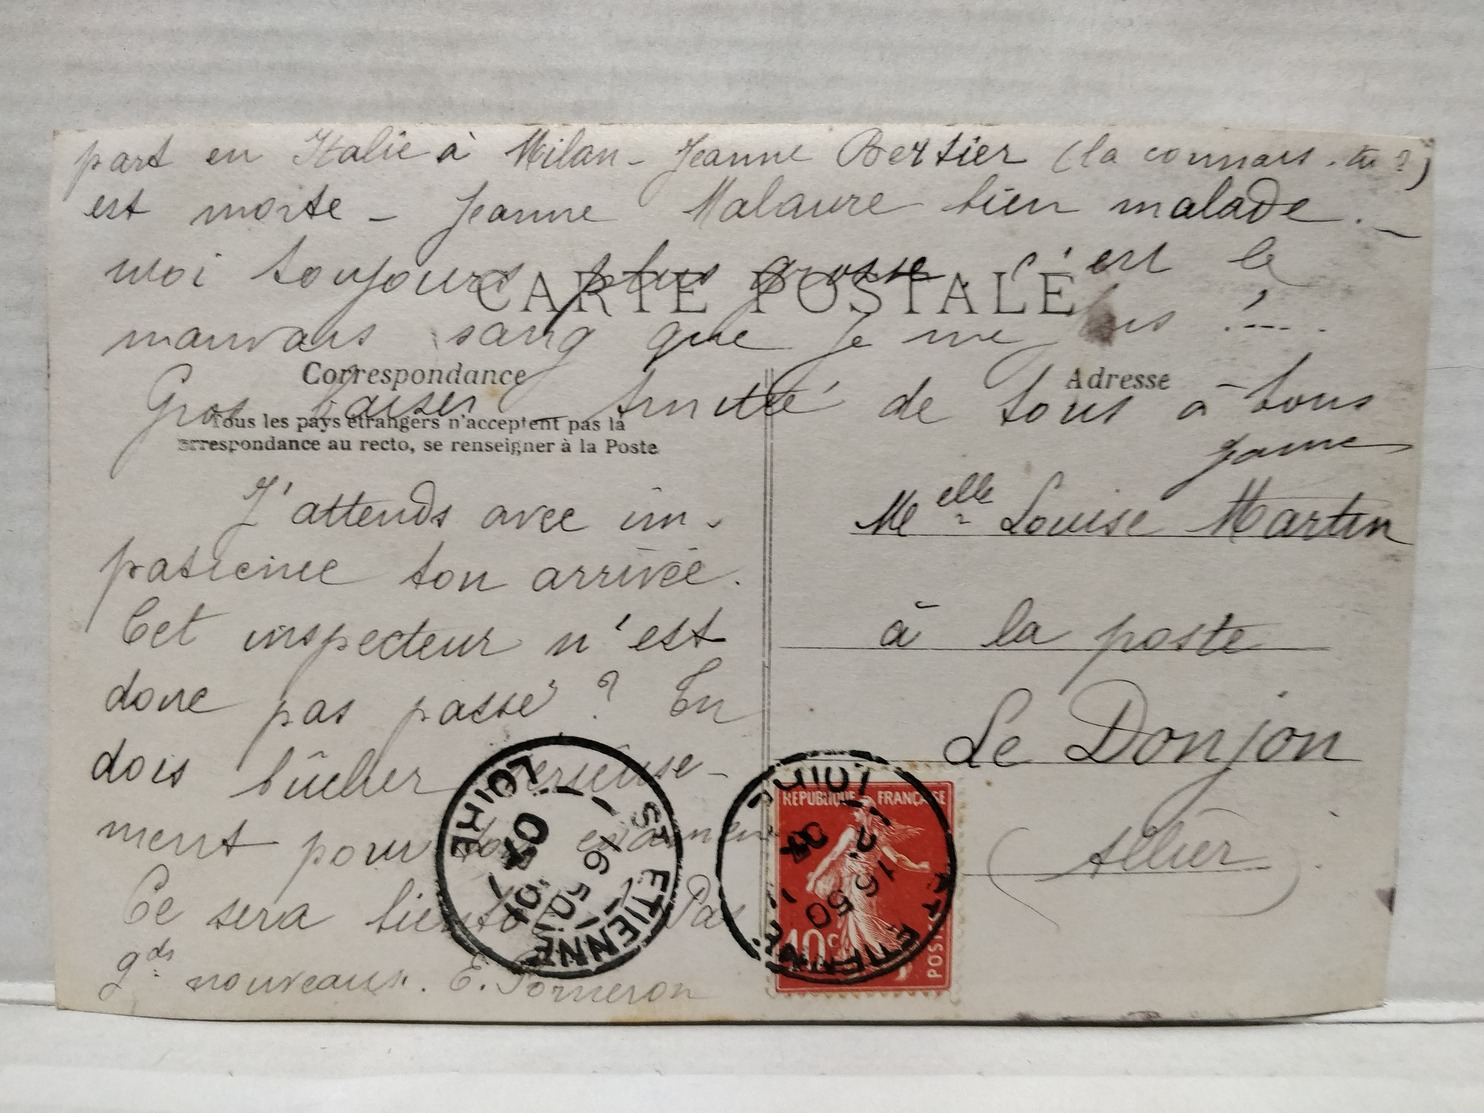 part en Italie à Milan - Jeanne Bertier (la connais-tu?)
est morte - Jeanne Malaure bien malade. -
moi toujours plus grosse. C'est le
CARTE POSTALE
mauvais sang que je me fais !---.
Correspondance
Adresse
Gros baiser Amitié de tous à tous
Tous les pays étrangers n'acceptent pas la
orrespondance au recto, se renseigner à la Poste
Jeanne
J'attends avec im-
patience ton arrivée.
Cet inspecteur n'est
donc pas passé? Tu
dois bûcher sérieuse-
ment pour ton examen
Ce sera bientôt ? Pas
gds nouveaux. E. Porneron
Melle Louise Martin
à la poste
Le Donjon
(Allier)
ST ETIENNE
LOIRE
16 50
07
REPUBLIQUE FRANÇAISE
10c
POSTES
ST ETIENNE
LOIRE
12
16 50
07